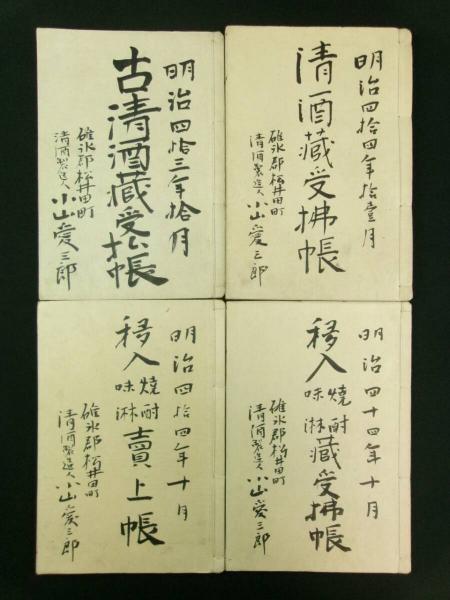 明治四拾四年拾壹月
清酒藏受拂帳
碓氷郡松井田町
清酒製造人 小山愛三郎
明治四拾三年拾月
古清酒藏受払帳
碓氷郡松井田町
清酒製造人 小山愛三郎
明治四十四年十月
移入焼酎味淋藏受拂帳
碓氷郡松井田町
清酒製造人 小山愛三郎
明治四拾四年十月
移入焼酎味淋賣上帳
碓氷郡松井田町
清酒製造人 小山愛三郎